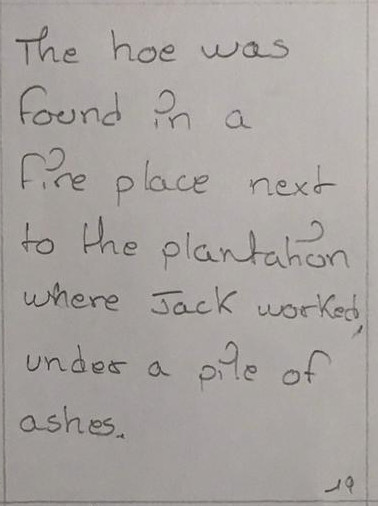 The hoe was
found in a
fire place next
to the plantation
where Jack worked,
under a pile of
ashes.
19